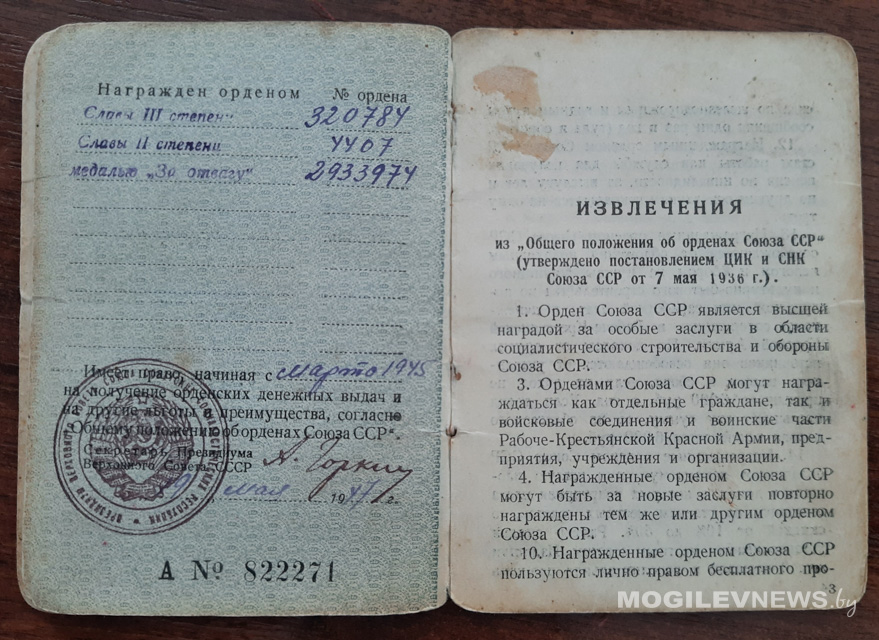 Награжден орденом № ордена
Славы III степени 320784
Славы II степени 4407
медалью „За отвагу" 2933974
Имеет право, начиная с марта 1945
на получение орденских денежных выдач и
на другие льготы и преимущества, согласно
„Общему положению об орденах Союза ССР".
Секретарь Президиума
Верховного Совета СССР А. Горкин
мая 1947 г.
А № 822271
ИЗВЛЕЧЕНИЯ
из „Общего положения об орденах Союза ССР"
(утверждено постановлением ЦИК и СНК
Союза ССР от 7 мая 1936 г.).
1. Орден Союза ССР является высшей
наградой за особые заслуги в области
социалистического строительства и обороны
Союза ССР.
3. Орденами Союза ССР могут награ-
ждаться как отдельные граждане, так и
войсковые соединения и воинские части
Рабоче-Крестьянской Красной Армии, пред-
приятия, учреждения и организации.
4. Награжденные орденом Союза ССР
могут быть за новые заслуги повторно
награждены тем же или другим орденом
Союза ССР.
10. Награжденные орденом Союза ССР
пользуются лично правом бесплатного про-
3
MOGILEVNEWS.by